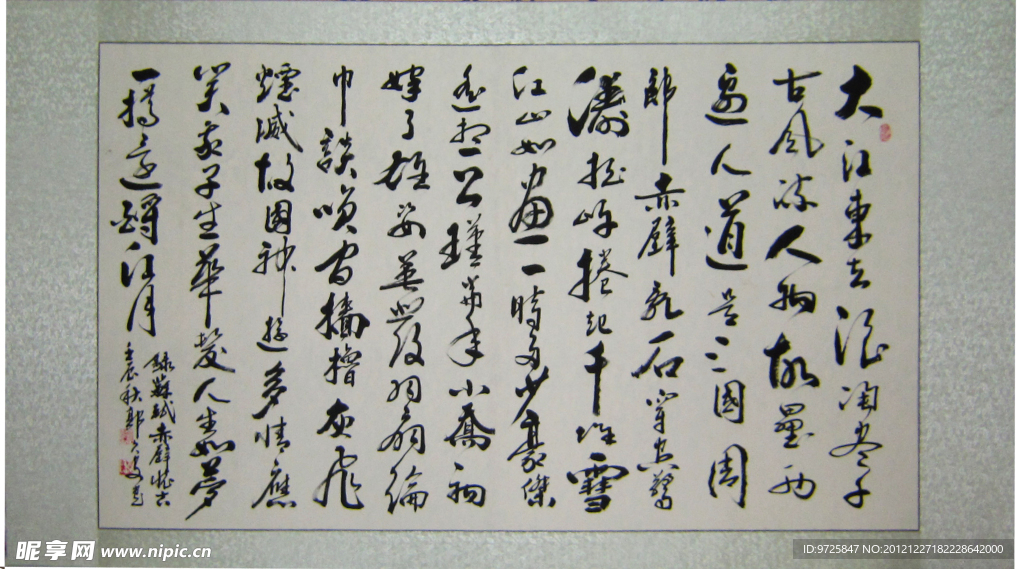 大江東去浪淘盡千
古風流人物故壘西
邊人道是三國周
郎赤壁亂石穿空驚
濤拍岸捲起千堆雪
江山如畫一時多少豪傑
遙想公瑾當年小喬初
嫁了雄姿英發羽扇綸
巾談咲間檣櫓灰飛
煙滅故國神遊多情應
笑我早生華髮人生如夢
一樽還酹江月
錄蘇軾赤壁懷古
壬辰秋郭
昵享网 www.nipic.cn
ID:9725847 NO:20121227182228642000